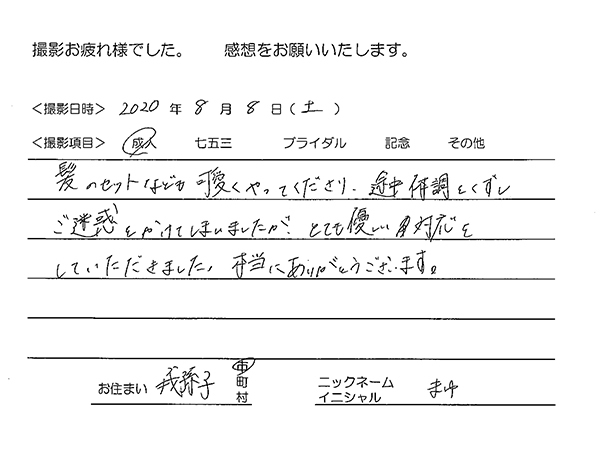 撮影お疲れ様でした。　感想をお願いいたします。
＜撮影日時＞ 2020 年 8 月 8 日（土）
＜撮影項目＞ 成人　七五三　ブライダル　記念　その他
髪のセットなども可愛くやってくださり、途中体調をくずし
ご迷惑をかけてしまいましたが、とても優しい対応を
していただきました。本当にありがとうございます。
お住まい 我孫子 市町村　ニックネームイニシャル まゆ